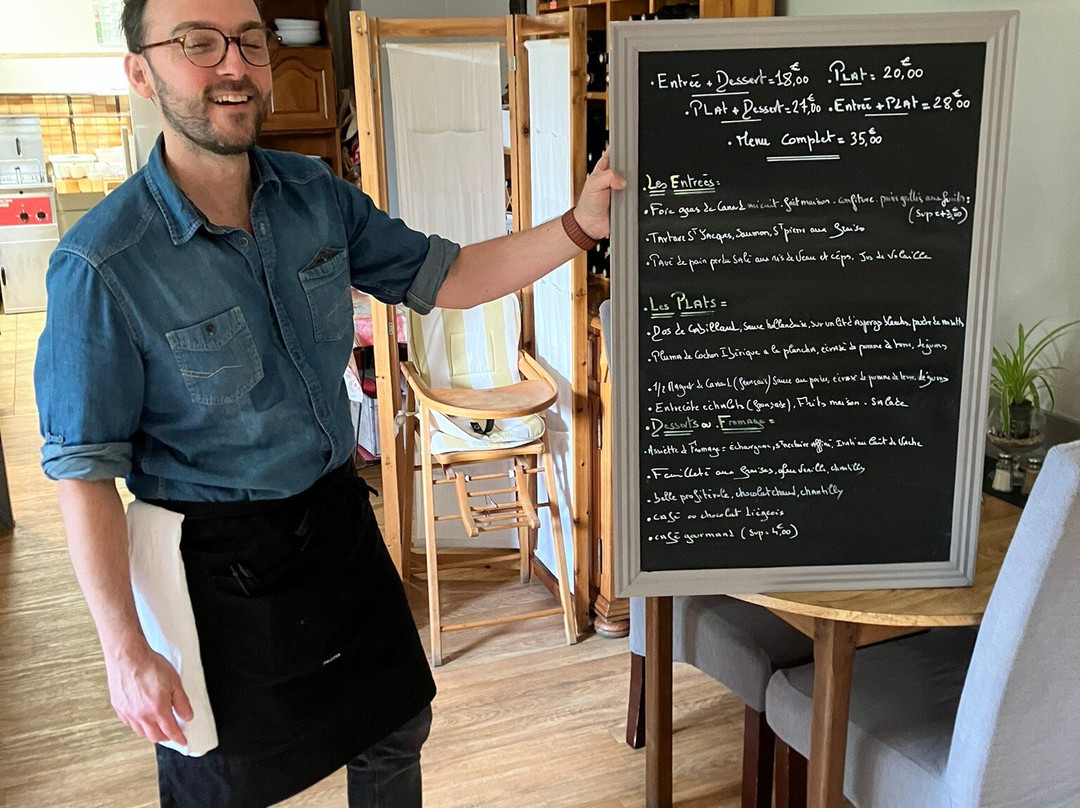 • Entrée + Dessert = 18,00€ • PLAT = 20,00€
• PLAT + Dessert = 24,00€ • Entrée + PLAT = 28,00€
• Menu complet = 35,00€
• Les Entrées :
• Foie gras de Canard mi cuit fait maison, confiture, pain grillé aux fruits :
(Sup + 3,00€)
• Tartare St Jacques, Saumon, St pierre aux
• Pavé de pain perdu Salé aux ris de Veau et cèps, Jus de Volaille
• Les PLATS =
• Dos de Cabillaud, Sauce hollandaise, sur un lit d'asperges blanches,
• Pluma de Cochon Ibérique a la plancha, écrasé de pomme de terre, légumes
• 1/2 Magret de Canard (français) Sauce au poivre, écrasé de pomme de terre, légumes
• Entrecôte échalote (française), Frites maison, Salade
• Desserts ou Fromage =
• Assiette de Fromage = St nectaire affiné, au lait de Vache
• Feuilleté aux fraises, glace vanille, chantilly
• belle profiterole, chocolat chaud, chantilly
• café ou chocolat liégeois
• café gourmand (Sup. 4,00€)